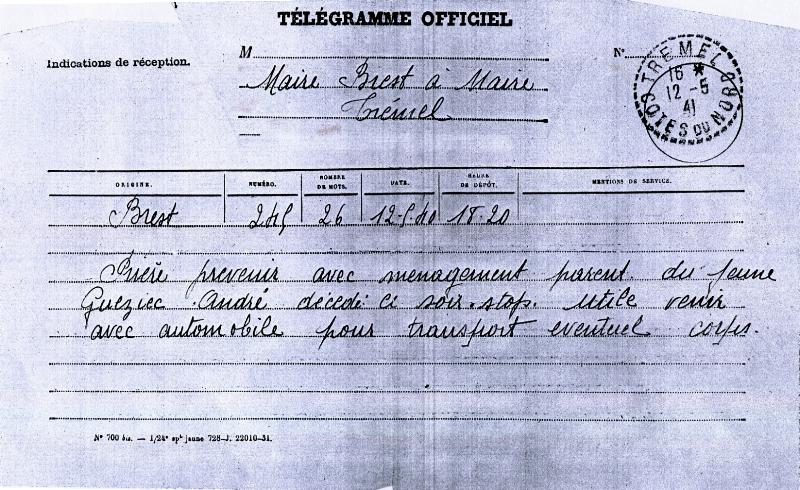 TÉLÉGRAMME OFFICIEL
Indications de réception.
M
N°
Maire Brest à Maire
Trémel
TREMEL
16 *
12-5
41
COTES DU NORD
ORIGINE. NUMÉRO. NOMBRE DE MOTS. DATE. HEURE DE DÉPÔT. MENTIONS DE SERVICE.
Brest 245 26 12-5-40 18.20
Prière prevenir avec menagement parent du jeune
Gueziec André décédé ce soir. stop. utile venir
avec automobile pour transport eventuel corps.
N° 700 bis. — 1/24e spl jaune 728-J. 22010-31.